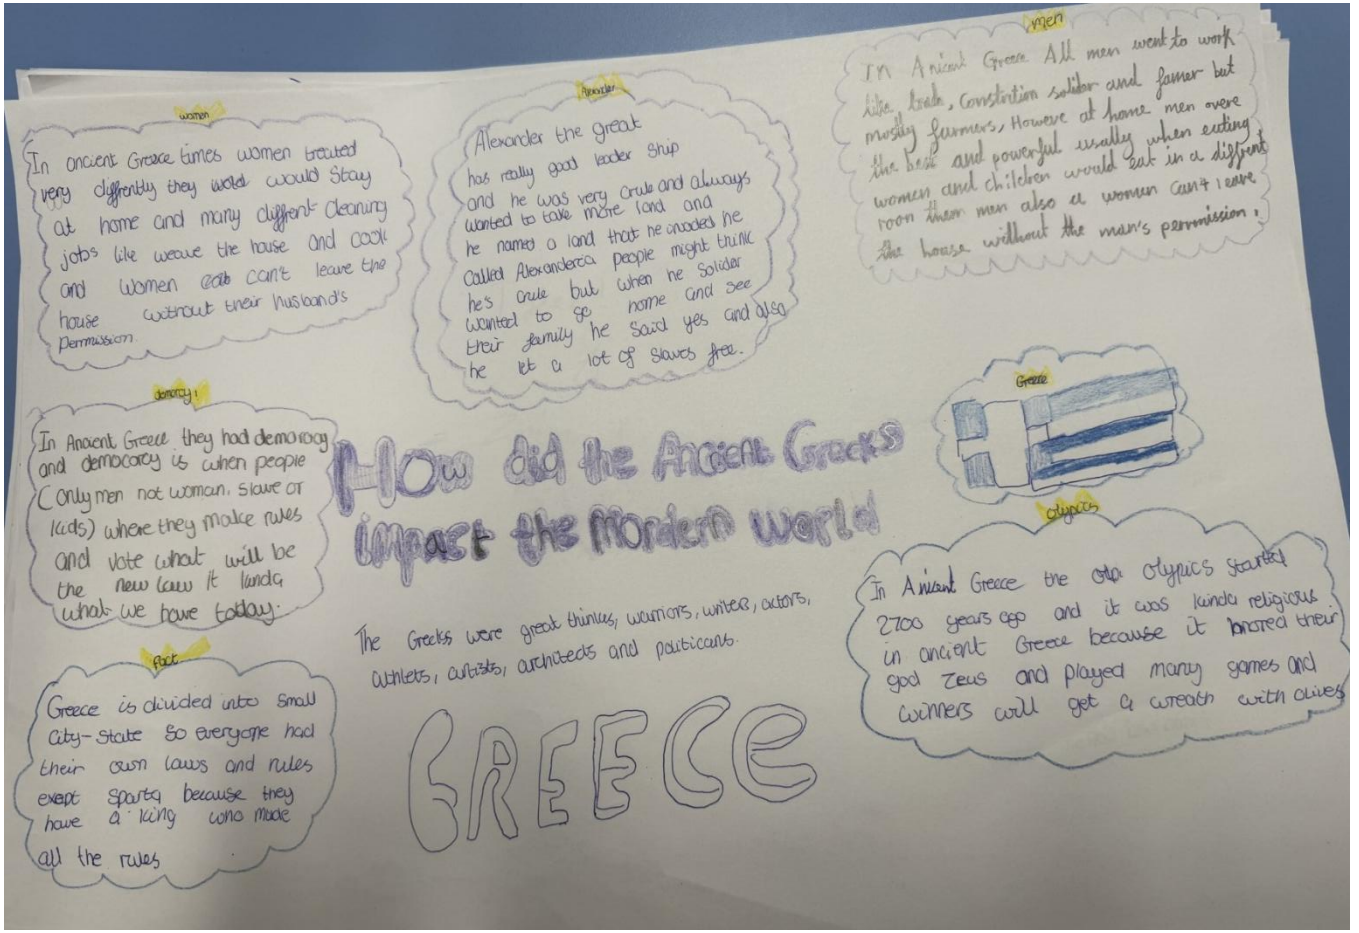 women
In ancient Greece times women treated
very diffrently they would stay
at home and many diffrent cleaning
jobs like weave the house and cook
and women can't leave the
house without their husband's
permission.
Alexander
Alexander the great
has really good leader ship
and he was very crule and always
wanted to take more land and
he named a land that he invaded he
called Alexanderia people might think
he's crule but when he solider
wanted to go home and see
their family he said yes and also
he let a lot of slaves free.
men
In Anicent Greece All men went to work
like trade, constrution solider and famer but
mostly farmers, Howeve at home men overe
the best and powerful usally when eating
women and children would eat in a diffrent
roon them men also a women can't leave
the house without the man's permission.
democry:
In Ancient Greece they had demoracy
and democracy is when people
(only men not woman, slave or
kids) where they make rules
and vote what will be
the new law it kinda
what we have today.
How did the Ancient Greeks
impact the Mordern world
The Greeks were great thinkes, warriors, writers, actors,
athlets, artists, architects and politicans.
GREECE
Greece
olypics
In Anicent Greece the olypics started
2700 years ago and it was kinda religious
in ancient Greece because it honored their
god Zeus and played many games and
winners will get a wreath with olives
fact
Greece is divided into small
city-state so everyone had
their own laws and rules
exept Sparta because they
have a king who made
all the rules